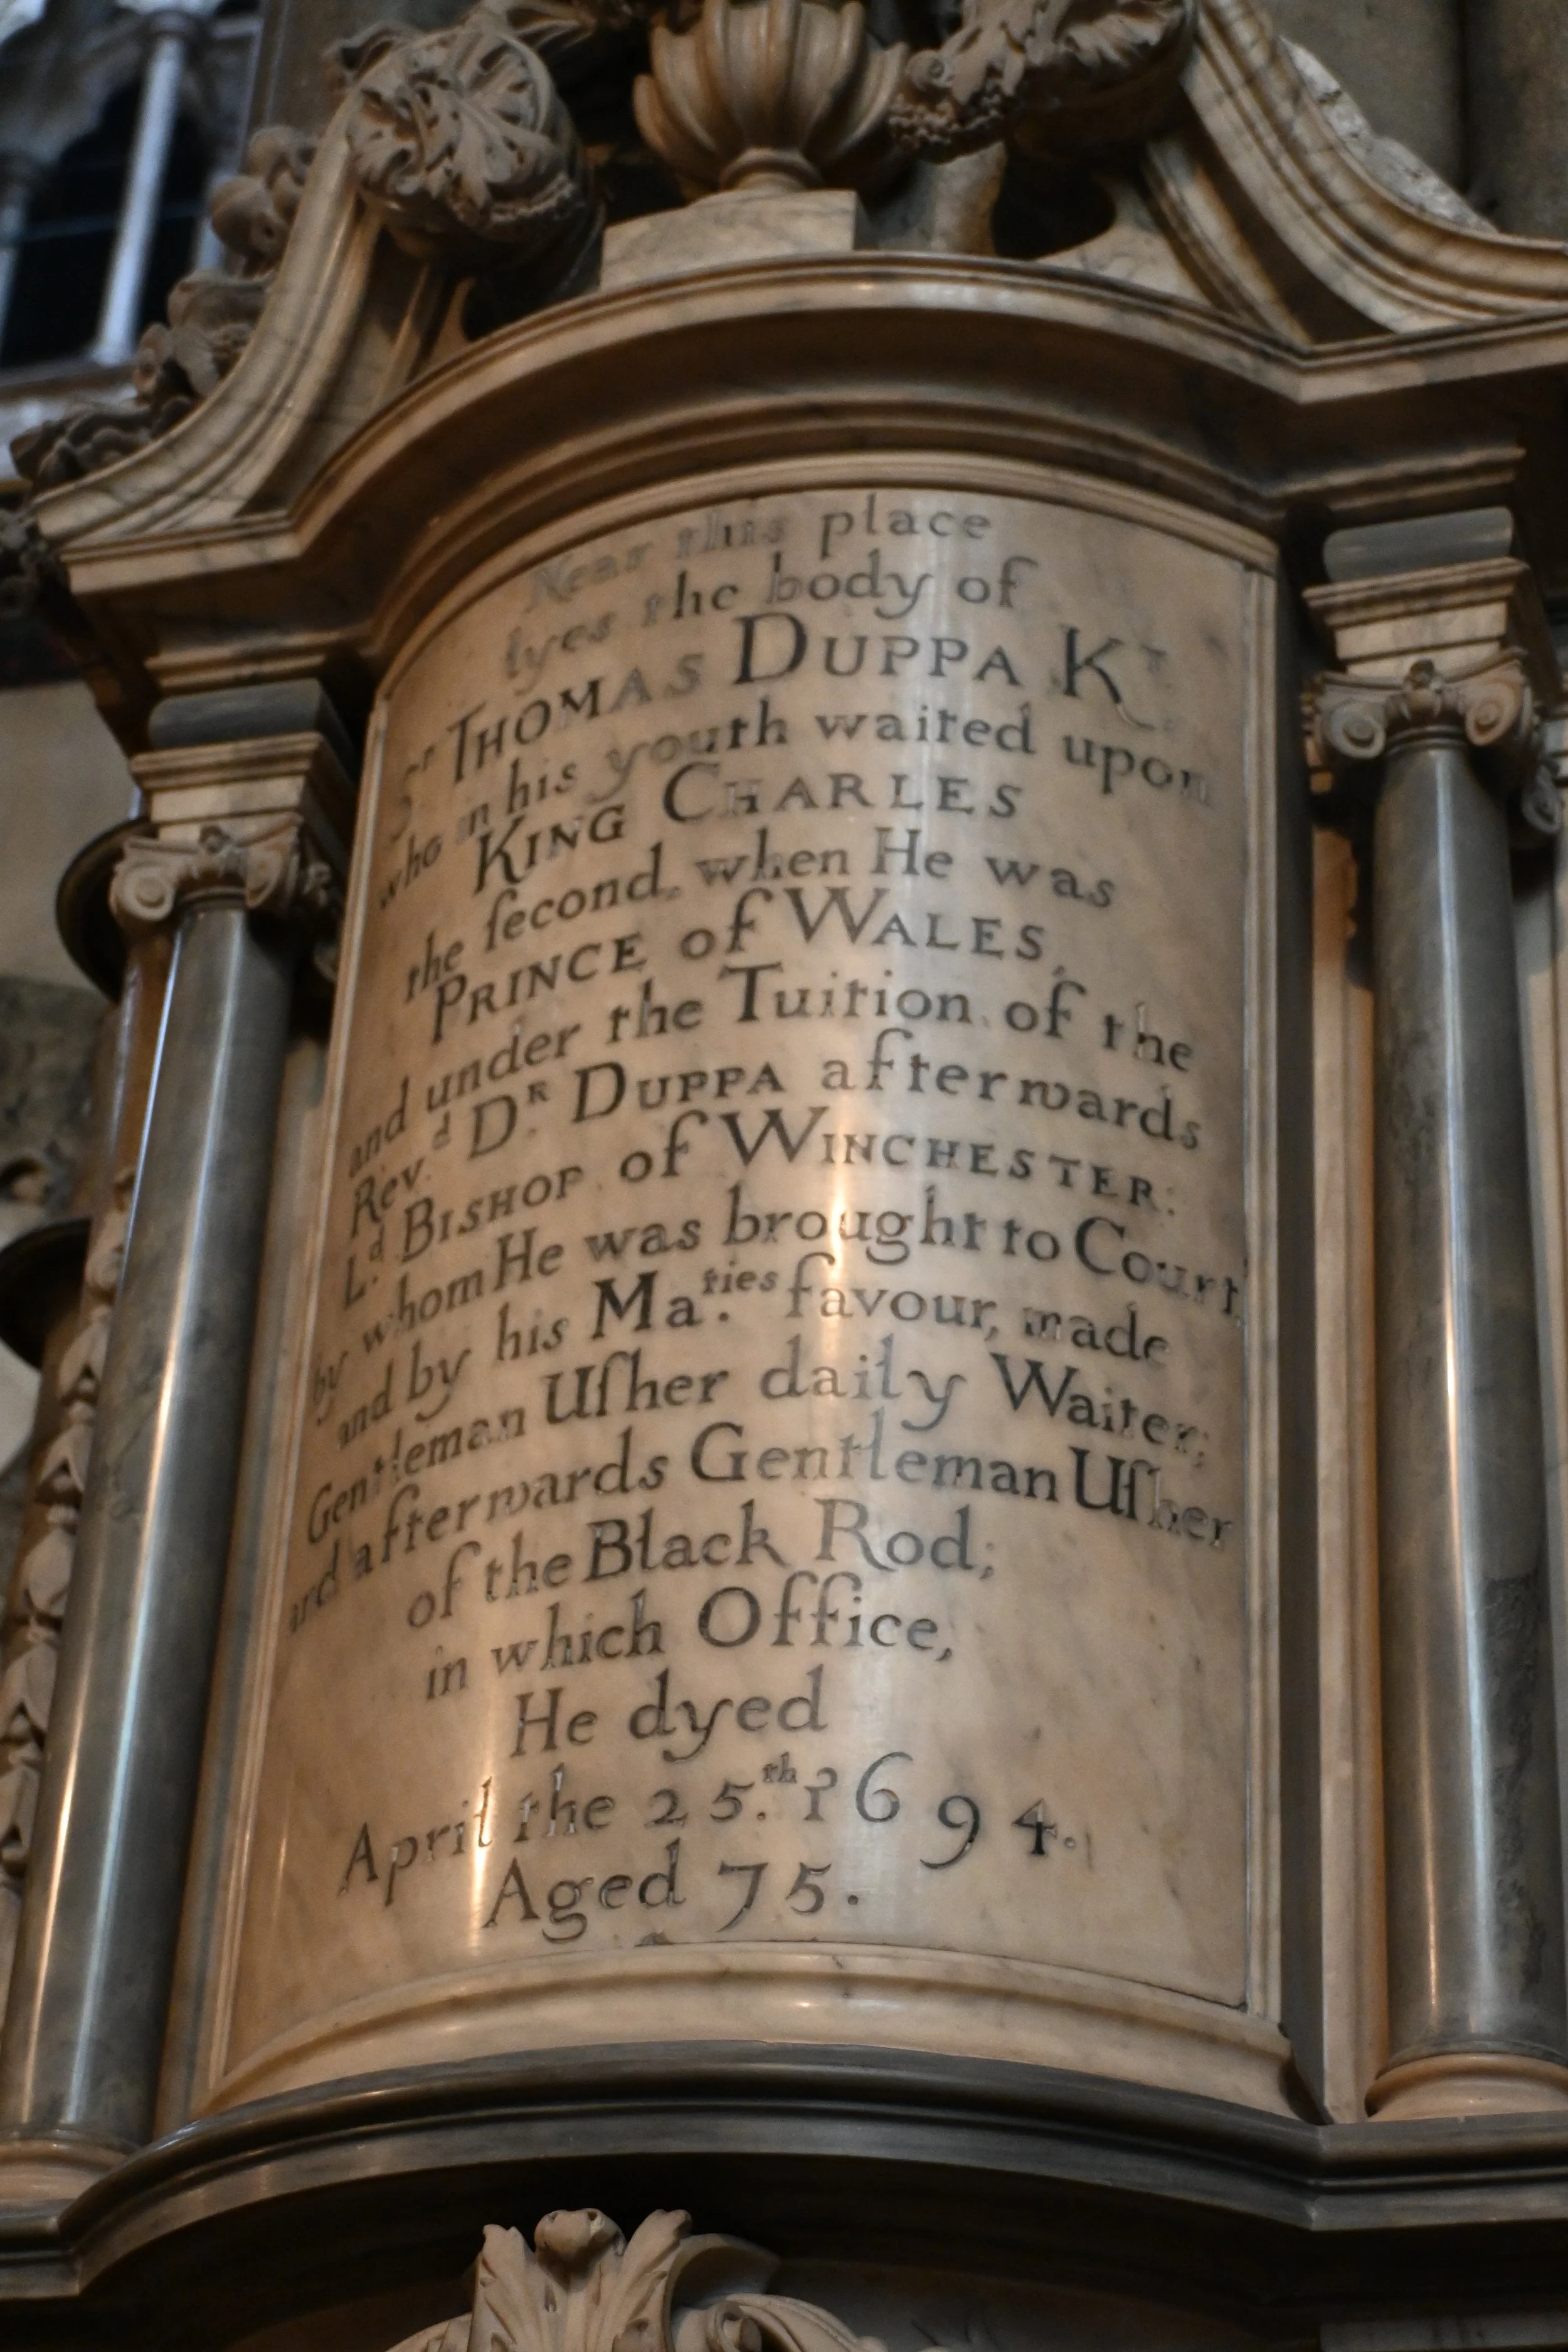 Near this place
lyes the body of
Sr THOMAS DUPPA KT
who in his youth waited upon
KING CHARLES
the ſecond, when He was
PRINCE of WALES,
and under the Tuition of the
Rev.d DR. DUPPA afterwards
L.d BISHOP of WINCHESTER:
by whom He was brought to Court,
and by his Ma.ties favour, made
Gentleman Uſher daily Waiter;
and afterwards Gentleman Uſher
of the Black Rod;
in which Office,
He dyed
April the 25.th 1694.
Aged 75.